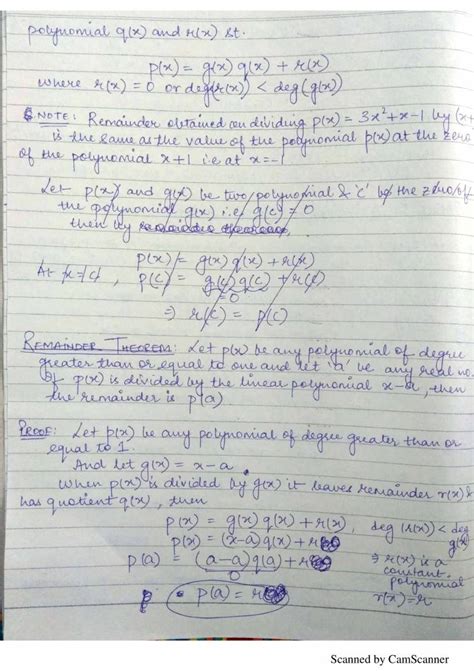 polynomial q(x) and r(x) st.
p(x) = g(x) q(x) + r(x)
where r(x) = 0 or deg(r(x)) < deg(g(x))
NOTE: Remainder obtained on dividing p(x) = 3x²+x-1 by (x+
is the same as the value of the polynomial p(x) at the zero
of the polynomial x+1 i.e at x=-1
Let p(x) and g(x) be two polynomial & 'c' be the zero of
the polynomial g(x) i.e. g(c) = 0
then by remainder theorem,
p(x) = g(x) q(x) + r(x)
At x=c, p(c) = g(c) q(c) + r(c)
=0
⇒ r(c) = p(c)
REMAINDER THEOREM: Let p(x) be any polynomial of degree
greater than or equal to one and let 'a' be any real no.
If p(x) is divided by the linear polynomial x-a, then
the remainder is p(a)
PROOF: Let p(x) be any polynomial of degree greater than or
equal to 1.
And let g(x) = x-a
When p(x) is divided by g(x) it leaves remainder r(x) &
has quotient q(x), then
p(x) = g(x) q(x) + r(x), deg (r(x)) < deg g(x)
p(x) = (x-a) q(x) + r
⇒ r(x) is a
p(a) = (a-a) q(a) + r
constant
0
polynomial
p(a) = r
r(x) = r
Scanned by CamScanner